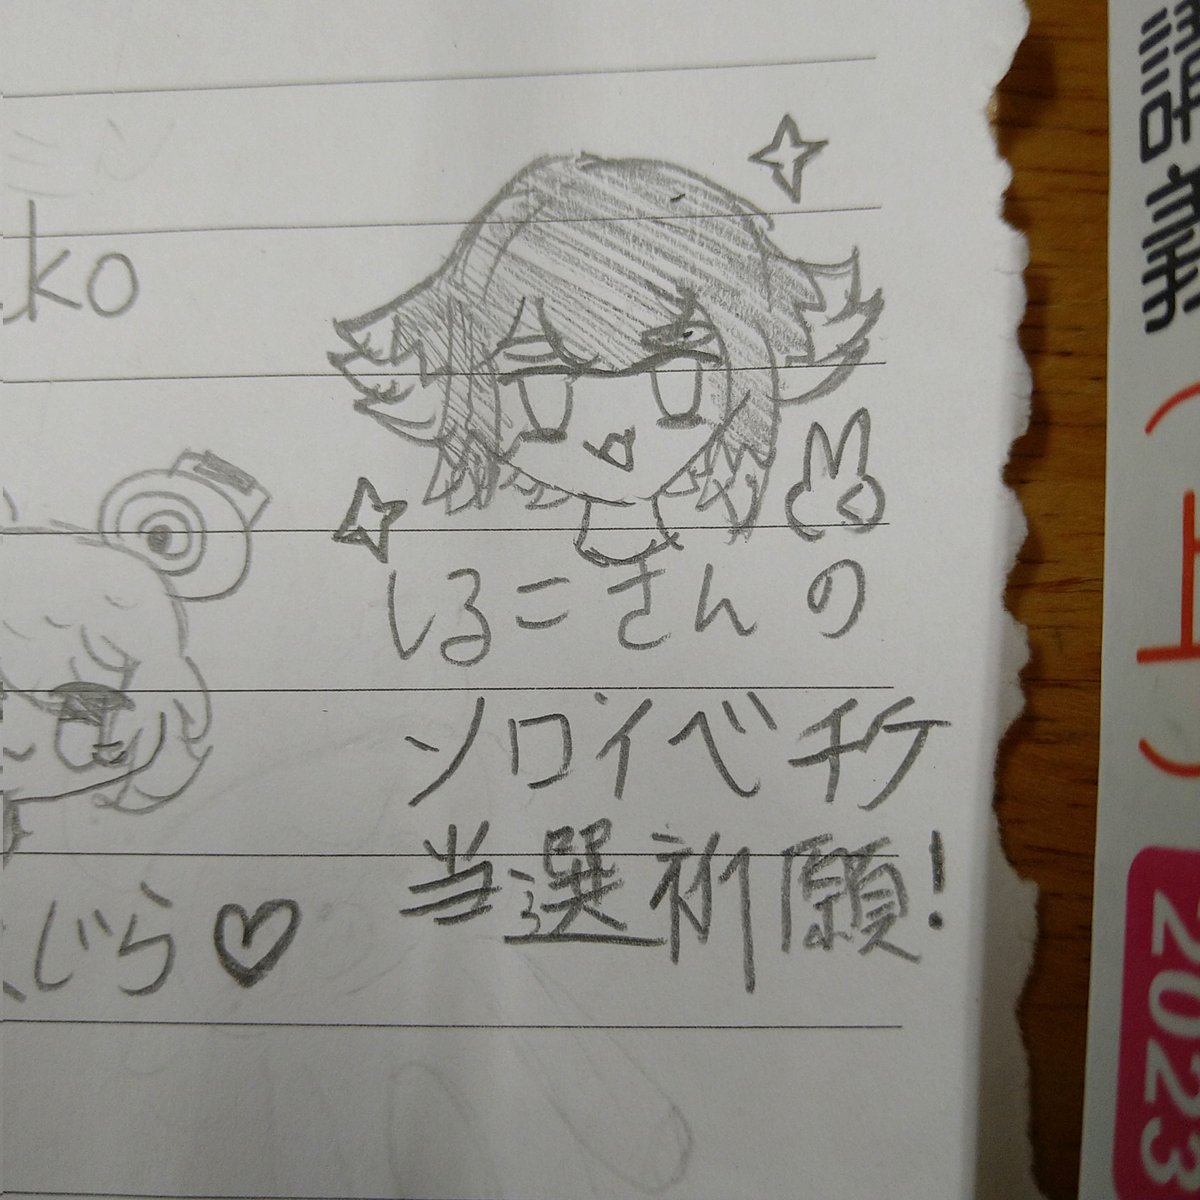 ko
しるこさんの
ソロイベチケ
当選祈願!
じら♡
論表(上)
2023